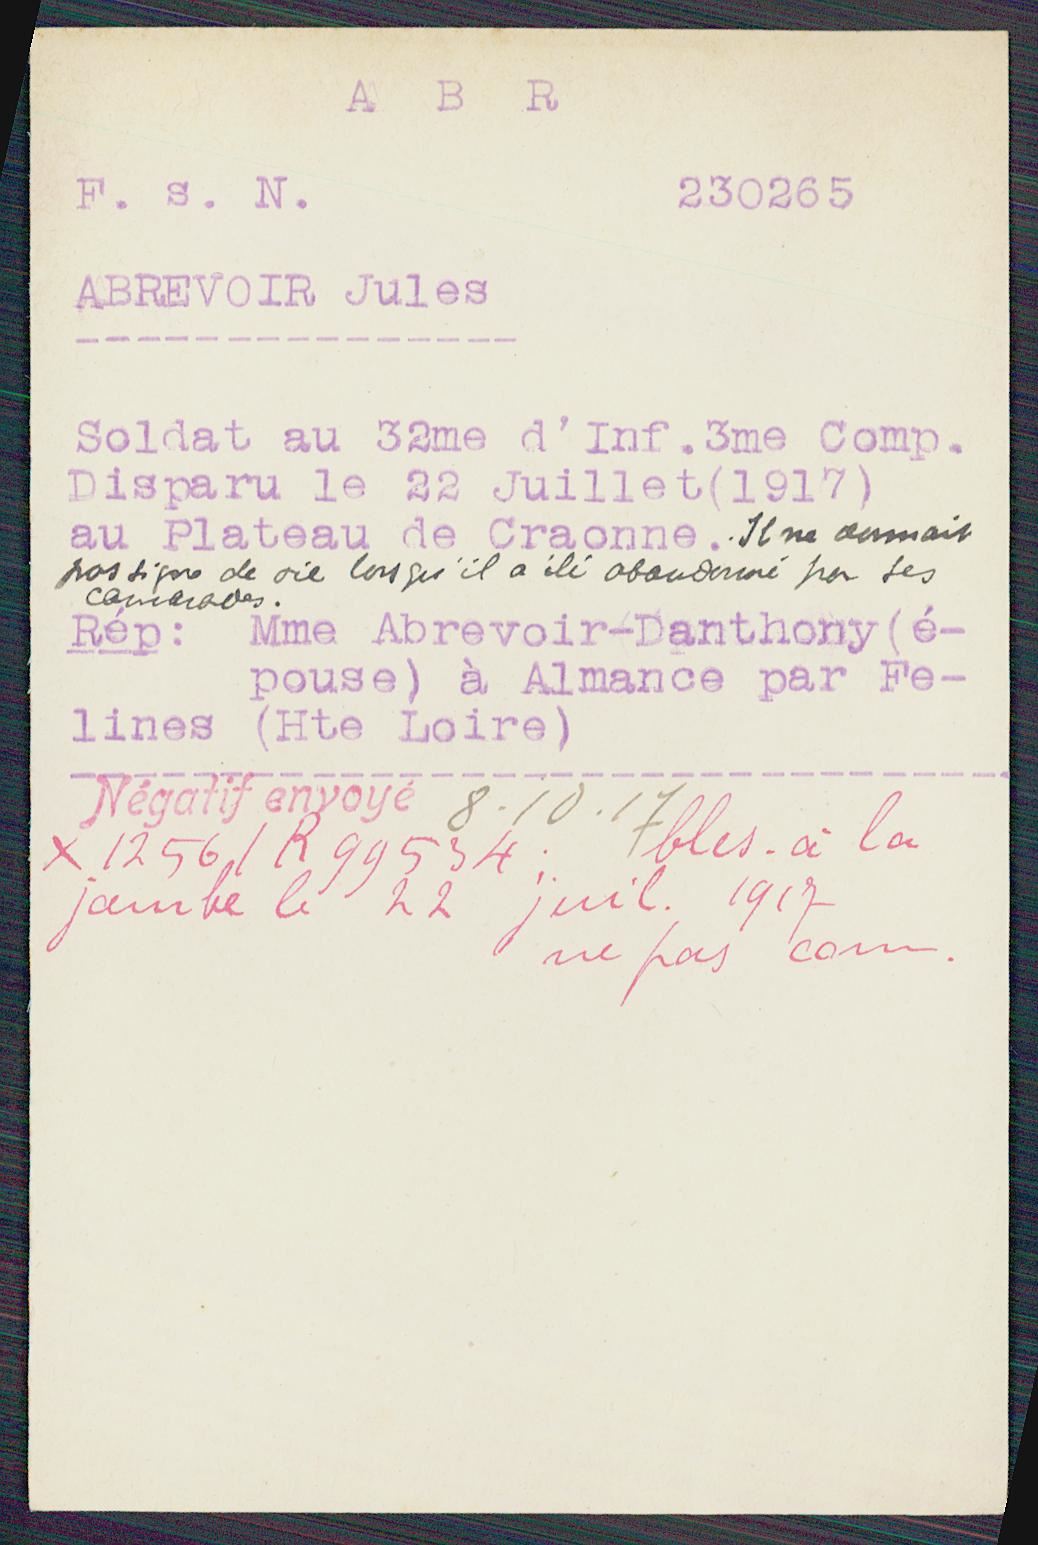 A B R
F. s. N. 230265
ABREVOIR Jules
---------------
Soldat au 32me d'Inf.3me Comp.
Disparu le 22 Juillet(1917)
au Plateau de Craonne. Il ne donnait
pas signe de vie lorsqu'il a été abandonné par ses
camarades.
Rép: Mme Abrevoir-Danthony(é-
pouse) à Almance par Fe-
lines (Hte Loire)
Négatif envoyé 8.10.17
x 1256/ R 99534 : bles. à la
jambe le 22 juil. 1917
ne pas com.